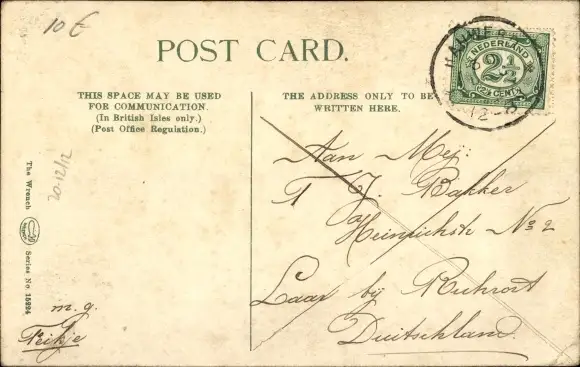 10 €
POST CARD.
THIS SPACE MAY BE USED
FOR COMMUNICATION.
(In British Isles only.)
(Post Office Regulation.)
THE ADDRESS ONLY TO BE
WRITTEN HERE.
NEDERLAND
2½
2½ CENT
The Wrench
Series No. 15294
20-12/12
Aan Mej:
T J. Bakker
Heinrichstr No 2
Laar bij Ruhrort
Duitschland.
m. g.
Feikje